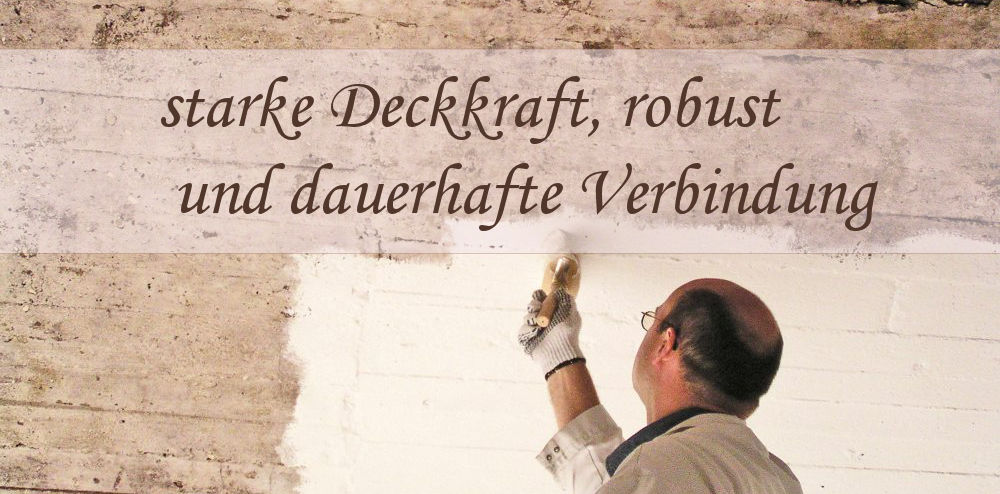 starke Deckkraft, robust
und dauerhafte Verbindung